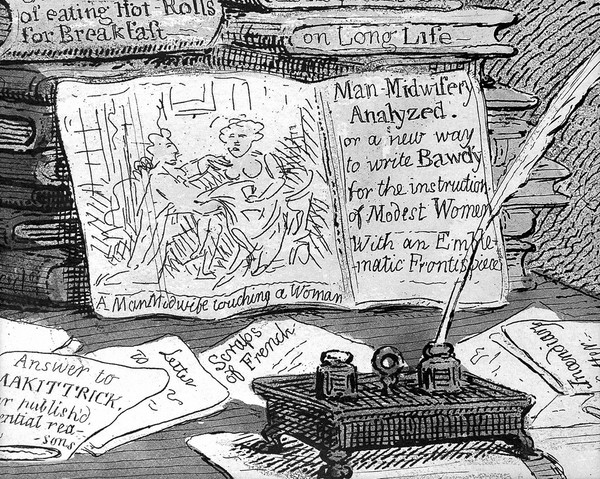 of eating Hot-Rolls
for Breakfast
on Long Life
Man-Midwifery
Analyzed.
or a new way
to write Bawdy
for the instruction
of Modest Women
With an Emble-
matic Frontispiece
A ManMidwife touching a Woman
Answer to
MAKITTRICK.
publish'd.
ential rea-
-sons
TO
Letter
Scraps
of French